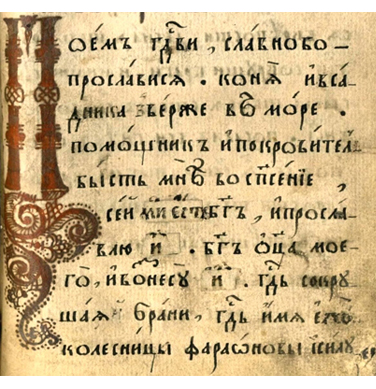 Поемъ гдⷭ҇ви, славнобо–
прославися. конѧ̀ и҆вса́
дника вве́рже в мо́ре.
помощникъ и҆покрови́тел
бы́сть мнѣ̀ во сп҃се́нїе,
сей мѝ є҆сть бг҃ъ, и҆просла́
влю и҆̀. бг҃ъ ѻ҆ц҃а̀ мое–
го̀, и҆вонесꙋ̀ и҆̀. гдⷭ҇ь сокрꙋ
ша́ѧй бра́ни, гдⷭ҇ь и҆́мѧ є҆мꙋ̀
колесни́цы фараѡ́новы и҆си́лꙋ